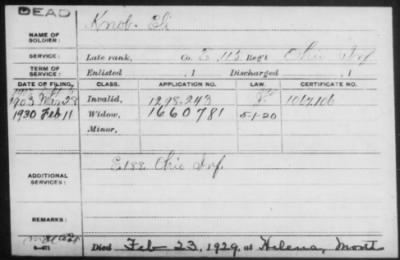 DEAD
NAME OF SOLDIER: Knob. Eli
SERVICE: Late rank, Co. E 115 Reg't Ohio Inf.
TERM OF SERVICE: Enlisted , 1 Discharged , 1
DATE OF FILING. CLASS. APPLICATION NO. LAW. CERTIFICATE NO.
1903 Mar 28 Invalid, 1298.243 1067,106
1930 Feb 11 Widow, 1660781 5-1-20
Minor,
ADDITIONAL SERVICES: E 188 Ohio Inf.
REMARKS:
Died Feb 23, 1929, at Helena, Mont